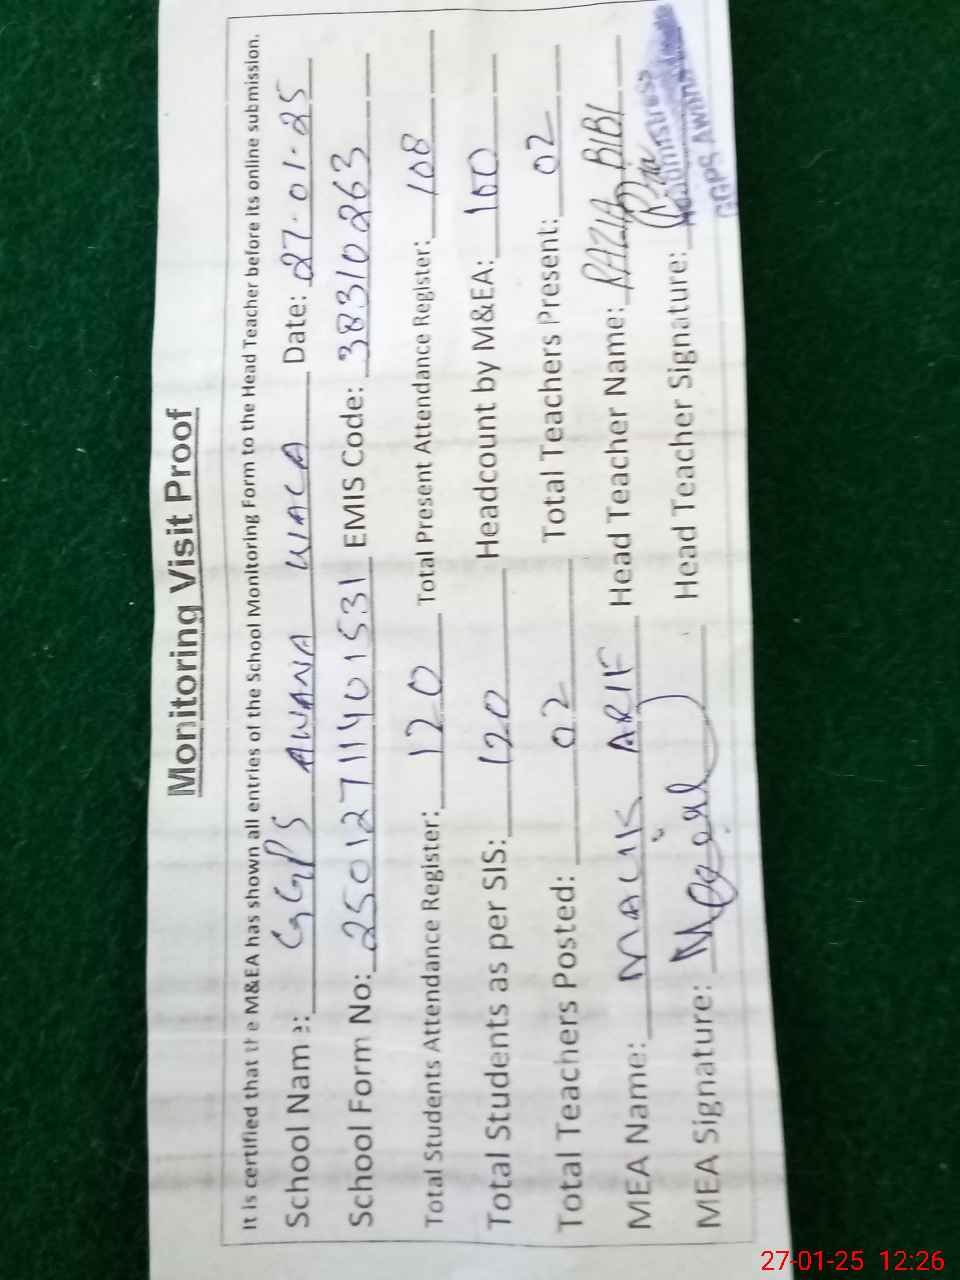 Monitoring Visit Proof
It is certified that the M&EA has shown all entries of the School Monitoring Form to the Head Teacher before its online submission.
School Name: GGPS AWANA WALA Date: 27-01-25
School Form No: 25012711401531 EMIS Code: 38310263
Total Students Attendance Register: 120 Total Present Attendance Register: 108
Total Students as per SIS: 120 Headcount by M&EA: 100
Total Teachers Posted: 02 Total Teachers Present: 02
MEA Name: MALIK ARIF Head Teacher Name: RAZIA BIBI
MEA Signature: Head Teacher Signature:
Headmistress
GGPS Awana
27-01-25 12:26